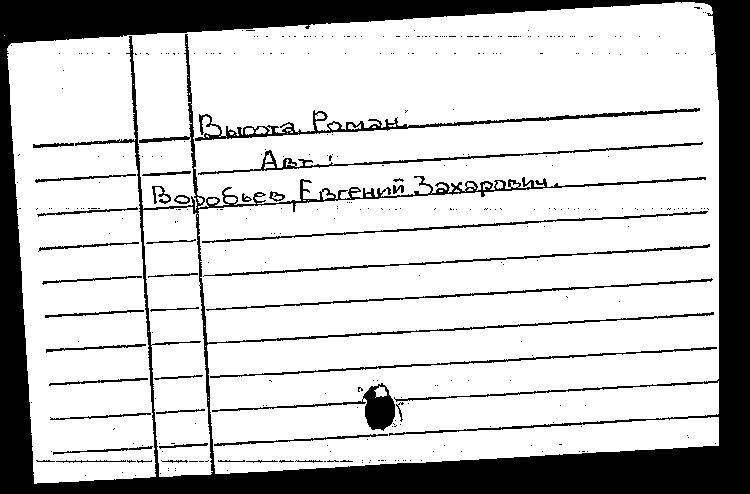 Высота. Роман.
Авт.:
Воробьев, Евгений Захарович.